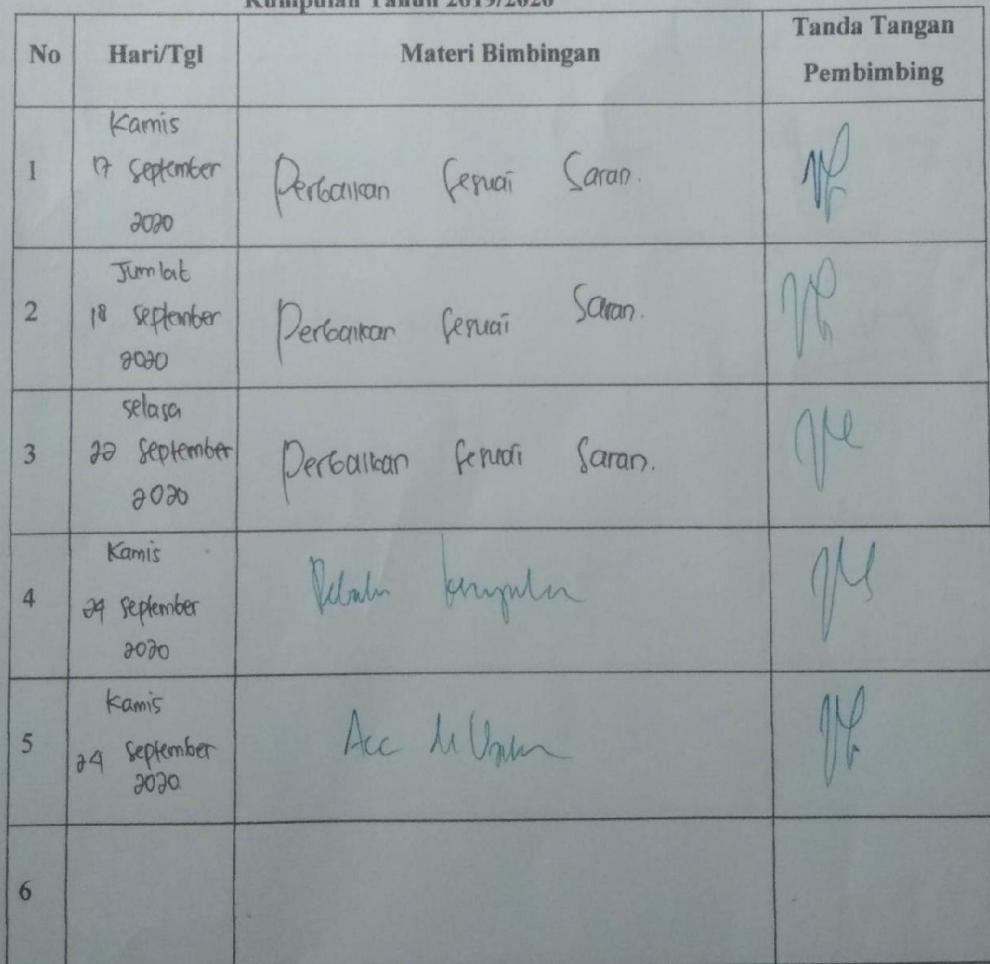 Kumpulan Tahun 2019/2020
No Hari/Tgl Materi Bimbingan Tanda Tangan
Pembimbing
1 Kamis
17 September
2020
Perbaikan Sesuai Saran.
2 Jum'at
18 September
2020
Perbaikan Sesuai Saran.
3 Selasa
22 September
2020
Perbaikan Sesuai Saran.
4 Kamis
24 September
2020
5 Kamis
24 September
2020
Acc di
6